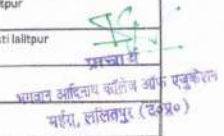 tpur
ti lalitpur
प्राचार्य
भगवान आदिनाथ कॉलेज ऑफ एजुकेशन
महर्रा, ललितपुर (उ०प्र०)